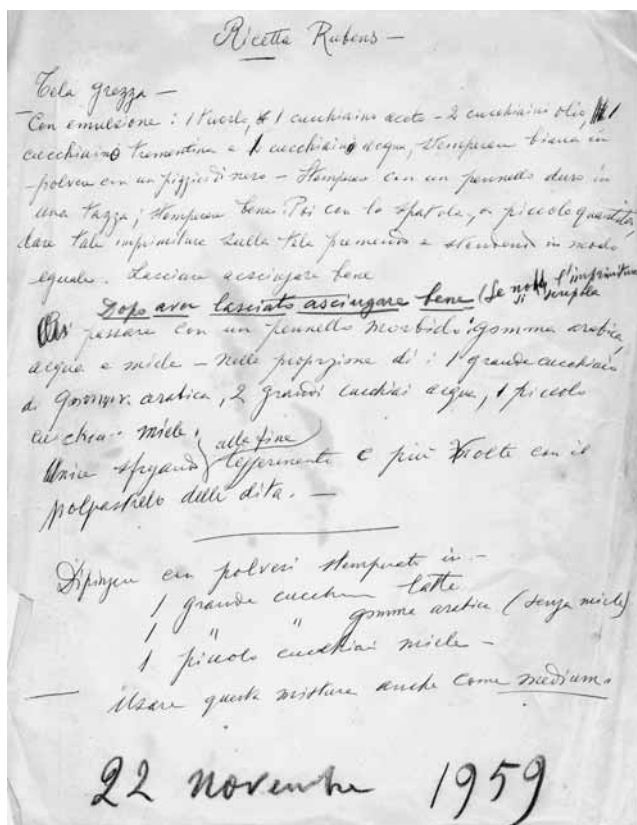 Ricetta Rubens —
Tela grezza —
Con emulsione : 1 tuorlo, 1 cucchiaino aceto - 2 cucchiaini olio, 1
cucchiaino trementina e 1 cucchiaino acqua, stemperare bianco in
polvere con un pizzico di nero - Stempero con un pennello duro in
una tazza; stemperare bene. Poi con la spatola, a piccole quantità,
dare tale imprimitura sulla tela premendo e stendendo in modo
eguale. Lasciare asciugare bene
Dopo aver lasciato asciugare bene (Se nott l'imprimitura
si screpola
passare con un pennello morbido : gomma arabica,
acqua e miele — nelle proporzione di : 1 grande cucchiaio
di gomma arabica, 2 grandi cucchiai acqua, 1 piccolo
miele.
alla fine
Unire leggermente e più volte con il
polpastrello delle dita. —
Dipingere con polveri stemperate in —
1 grande latte
1 " " gomma arabica (senza miele)
1 piccolo cucchiai miele -
Usare questa mistura anche come medium.
22 novembre 1959